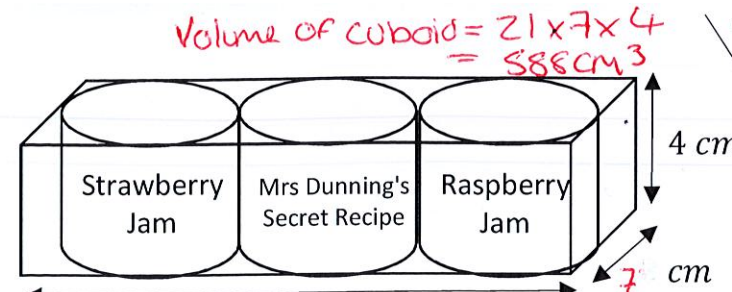 Volume of cuboid = 21 x 7 x 4
= 588cm³
4 cm
Strawberry
Jam
Mrs Dunning's
Secret Recipe
Raspberry
Jam
7 cm